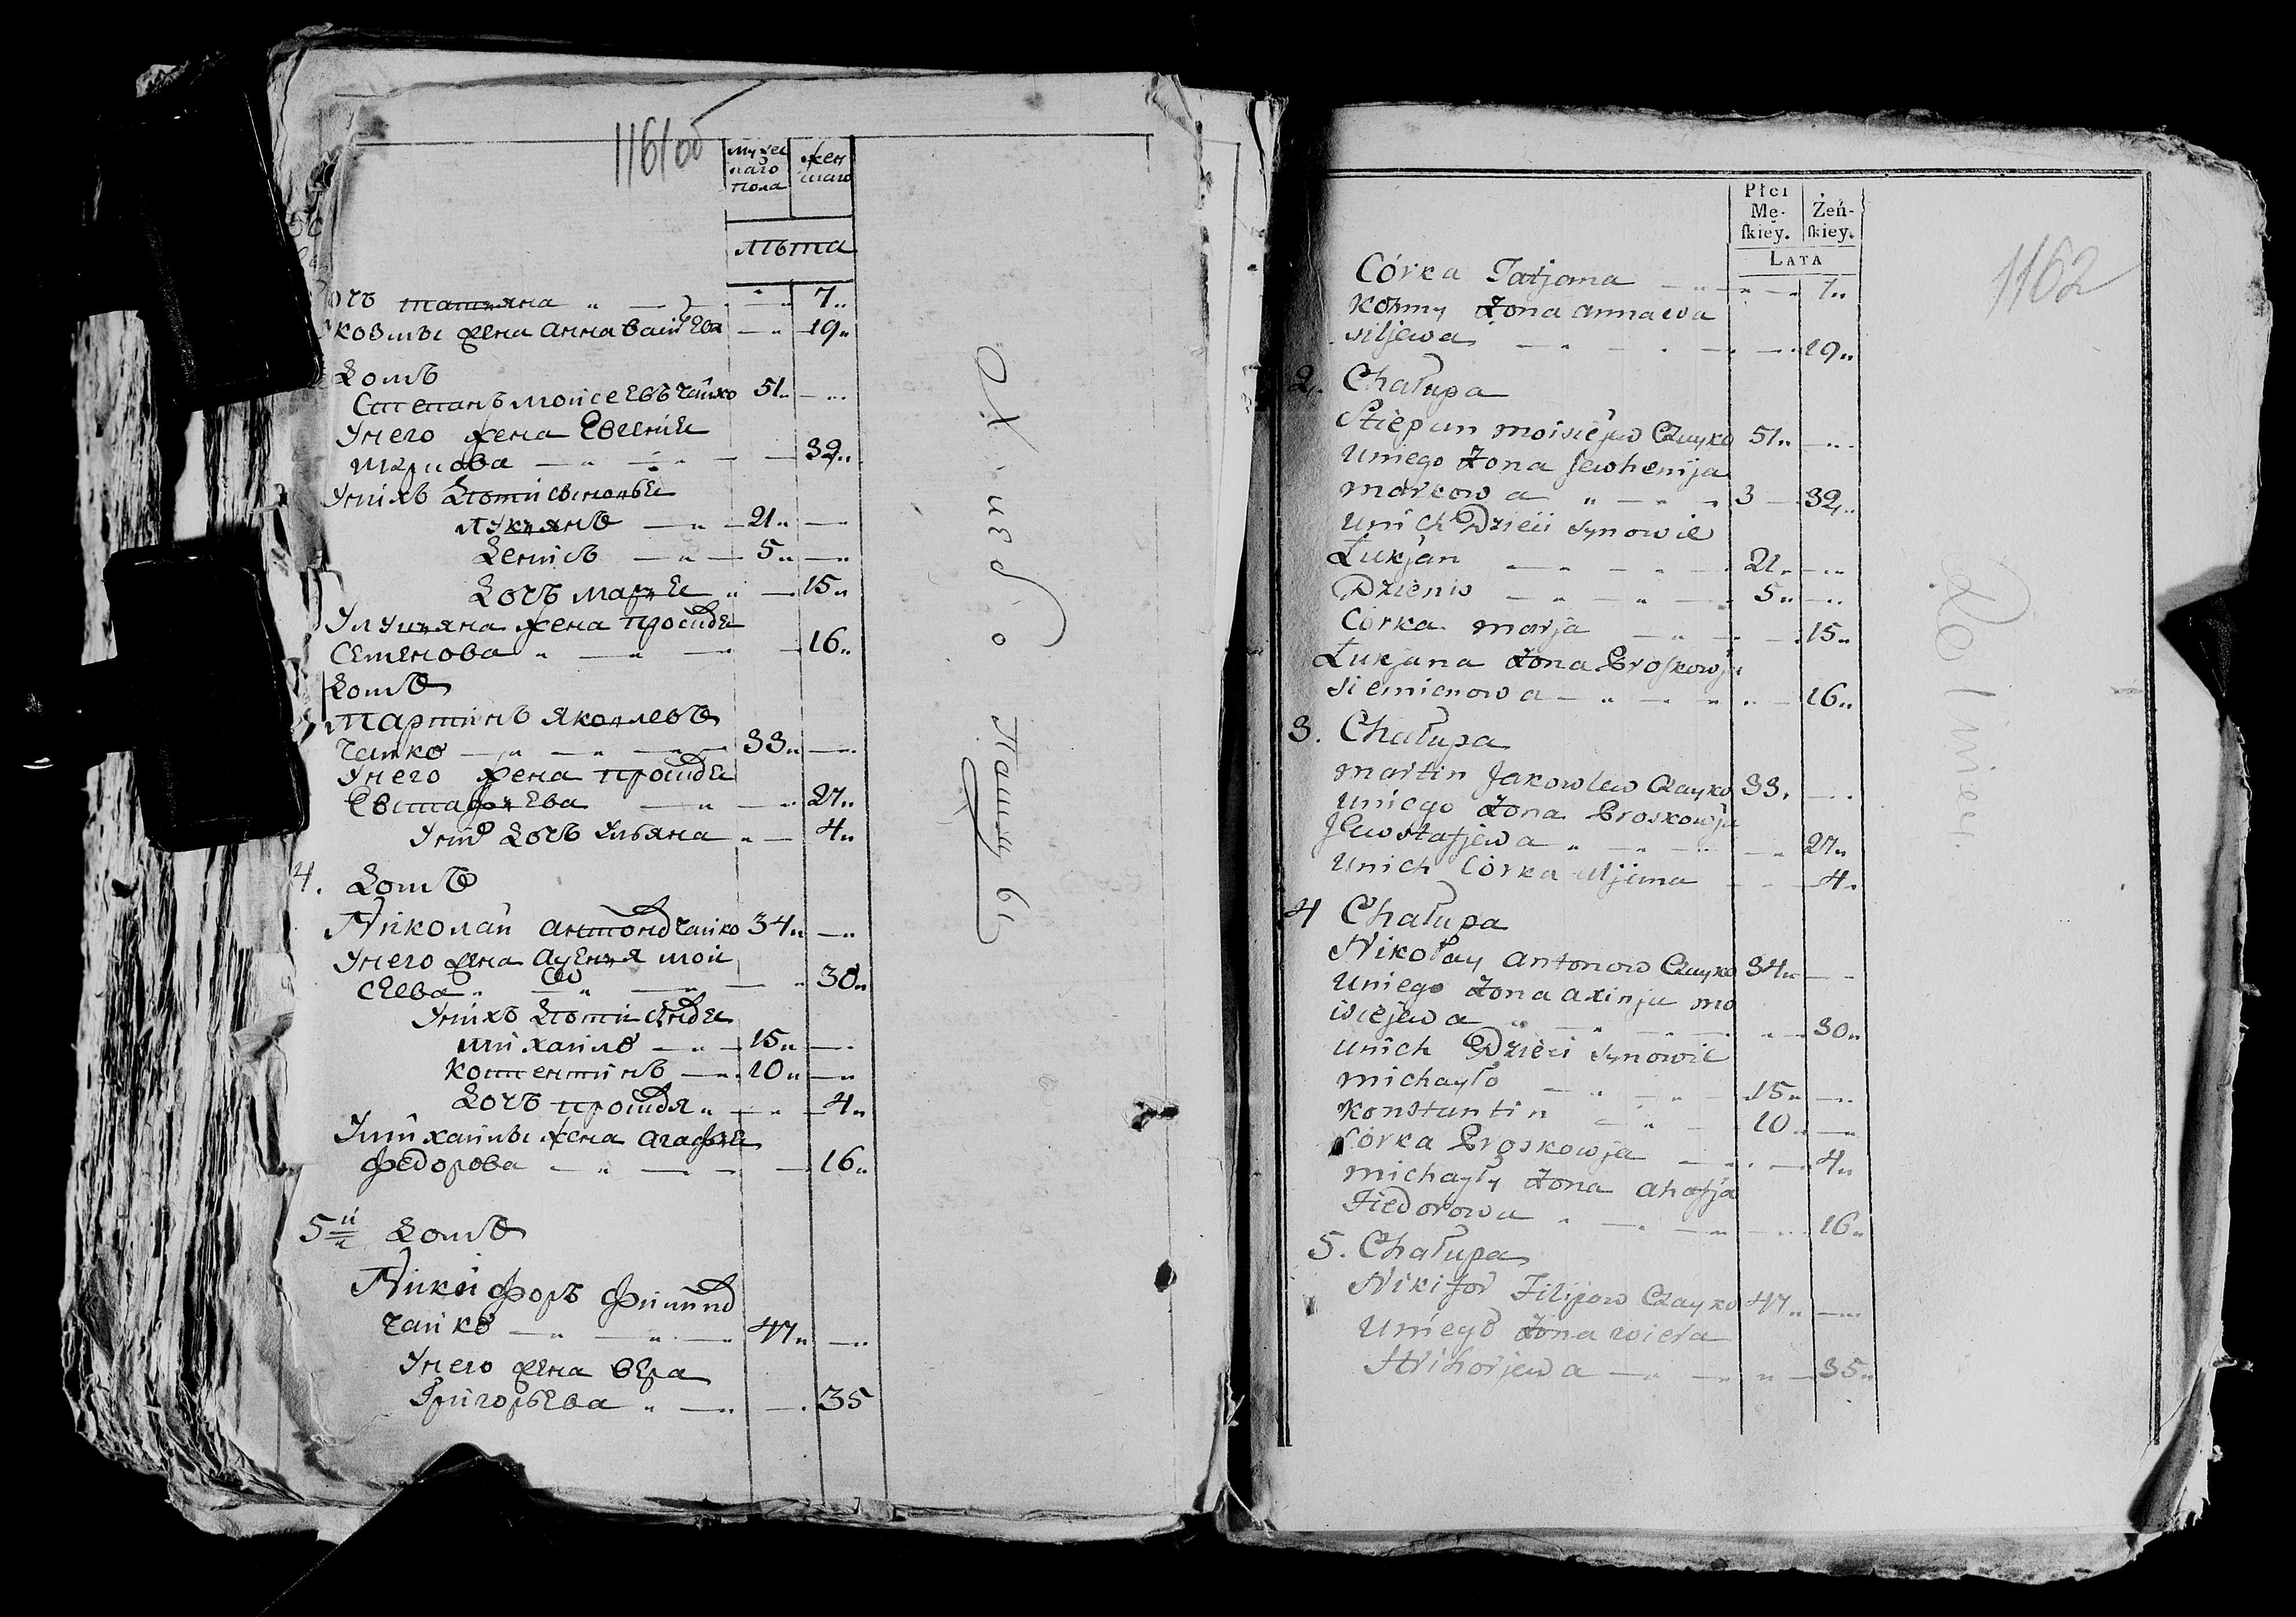 1161об
мужес
каго
пола
жен
скаго
лѣта
дочъ татьяна 7
козмы жена анна васильева 19
Домъ
Степанъ моисеевъ чайко 51
Унего жена Евгенiя
маркова 32
Унихъ дѣти сыновья
лукьянъ 21
денисъ 5
дочъ марья 15
Улукьяна жена просковья
семенова 16
Домъ
мартинъ яковлевъ
чайко 33
Унего жена просковья
Евстафьева 27
Унихъ дочъ ульяна 4
4. Домъ
Николай антоновъ чайко 34
Унего жена аксенья мои
сеева 30
Унихъ дѣти сыновья
михайло 15
костентинъ 10
дочъ просковья 4
Умихайлы жена агафья
федорова 16
5й Домъ
Никифоръ филиповъ
чайко 47
Унего жена вера
Григорьева 35
1162
Płci
Mę-
ſkiey.
Żeń-
ſkiey.
LATA
Córka Tatjana 7
Koźmy Żona anna wa
siljewa 19
2. Chałupa
Stiepan moisiejew Czayko 51
Uniego Żona Jewhenija
markowa 3 32
Unich Dzieci synowie
Łukjan 21
Dzienis 5
Córka marja 15
Łukjana Żona Proskowja
siemienowa 16
3. Chałupa
martin Jakowlew Czayko 33
Uniego Żona Proskowja
Jewstafjewa 27
Unich Córka Uljana 4
4 Chałupa
Nikołay antonow Czayko 34
Uniego Żona axinja mo
isiejewa 30
Unich Dzieci synowie
michayło 15
Konstantin 10
Córka Proskowja 4
michayły Żona ahafja
Fiedorowa 16
5. Chałupa
Nikifor Filipow Czayko 47
Uniego Żona wiera
Hrihorjewa 35